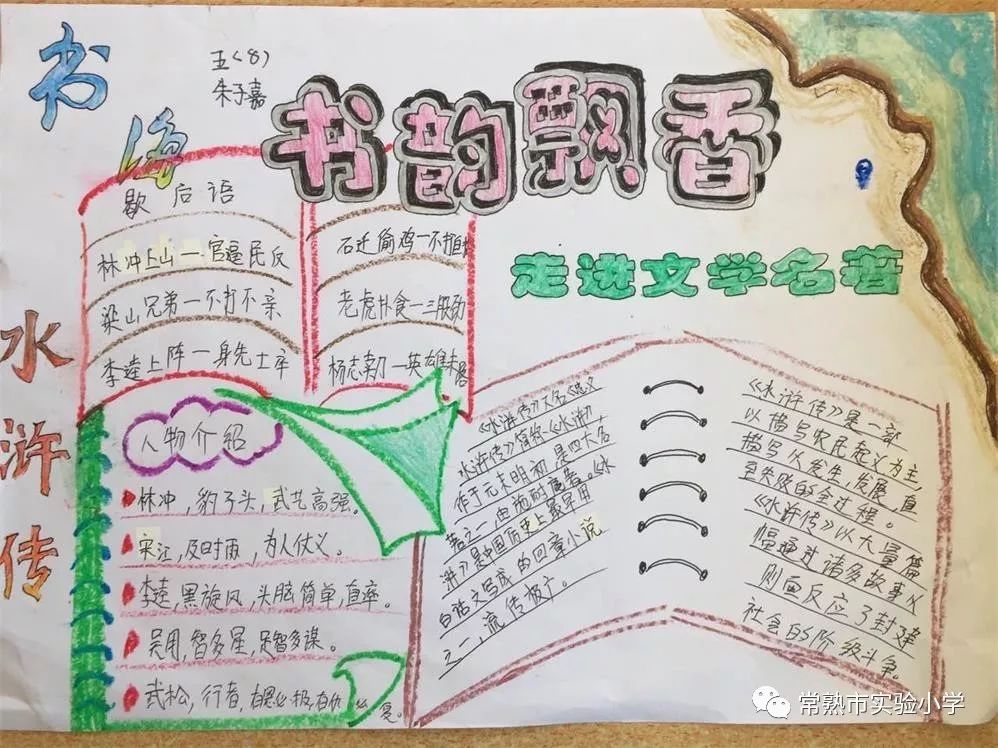 书海
水浒传
五(8)
朱子嘉
书韵飘香
走进文学名著
歇后语
林冲上山一官逼民反
梁山兄弟一不打不亲
李逵上阵一身先士卒
石迁偷鸡一不打自
老虎扑食一三股劲
杨志卖刀一英雄末路
人物介绍
林冲，豹子头，武艺高强。
宋江，及时雨，为人仗义。
李逵，黑旋风，头脑简单，直率。
吴用，智多星，足智多谋。
武松，行者，有恩必报，有仇必复。
《水浒传》又名《忠义
水浒传》简称《水浒》，
作于元末明初，是四大名
著之一，由施耐庵著。《水
浒》是中国历史上最早用
白话文写成的回章小说
之一，流传极广。
《水浒传》是一部
以描写农民起义为主，
描写从发生，发展，直
至失败的全过程。
《水浒传》以大量篇
幅通过诸多故事从
则面反应了封建
社会的阶级斗争。
常熟市实验小学